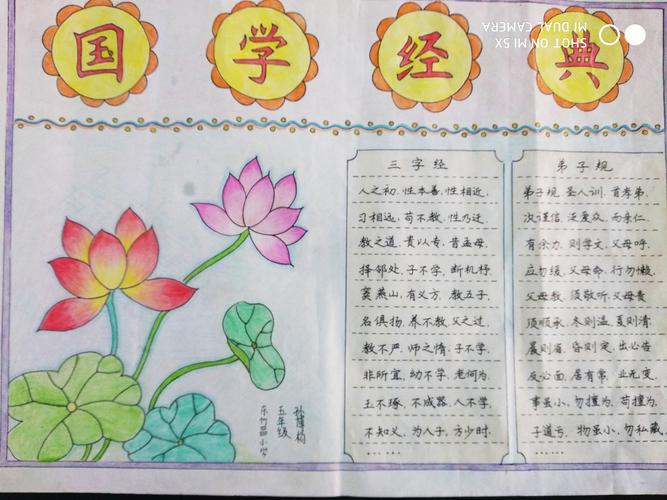 国学经典
SHOT ON MI 5X
MI DUAL CAMERA
三字经
人之初,性本善,性相近,
习相远,苟不教,性乃迁
教之道,贵以专,昔孟母,
择邻处,子不学,断机杼
窦燕山,有义方,教五子,
名俱扬,养不教,父之过,
教不严,师之惰,子不学,
非所宜,幼不学,老何为,
玉不琢,不成器,人不学,
不知义,为人子,方少时,
……
弟子规
弟子规 圣人训,首孝弟,
次谨信,泛爱众,而亲仁,
有余力,则学文,父母呼,
应勿缓,父母命,行勿懒,
父母教,须敬听,父母责
须顺承,冬则温,夏则清
晨则省,昏则定,出必告
反必面,居有常,业无变,
事虽小,勿擅为,苟擅为,
子道亏,物虽小,勿私藏,
……
五年级
小学